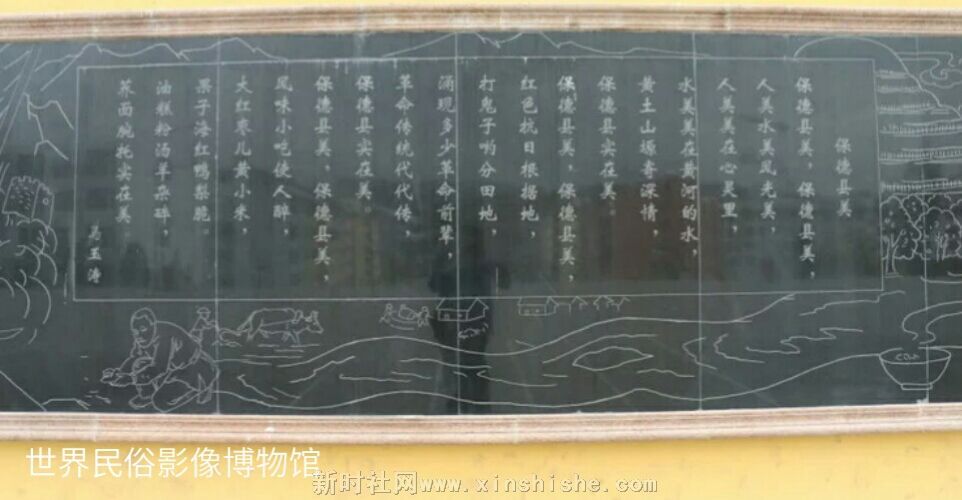 保德县美
保德县美，保德县美，
人美水美风光美，
人美美在心灵里，
水美美在黄河的水，
黄土山塬寄深情，
保德县实在美。
保德县美，保德县美，
红色抗日根据地，
打鬼子哟分田地，
涌现多少革命前辈，
革命传统代代传，
保德县实在美。
保德县美，保德县美，
风味小吃使人醉，
大红枣儿黄小米，
果子海红鸭梨脆。
油糕粉汤羊杂碎，
荞面碗托实在美。
玉涛
世界民俗影像博物馆
新时社网www.xinshishe.com